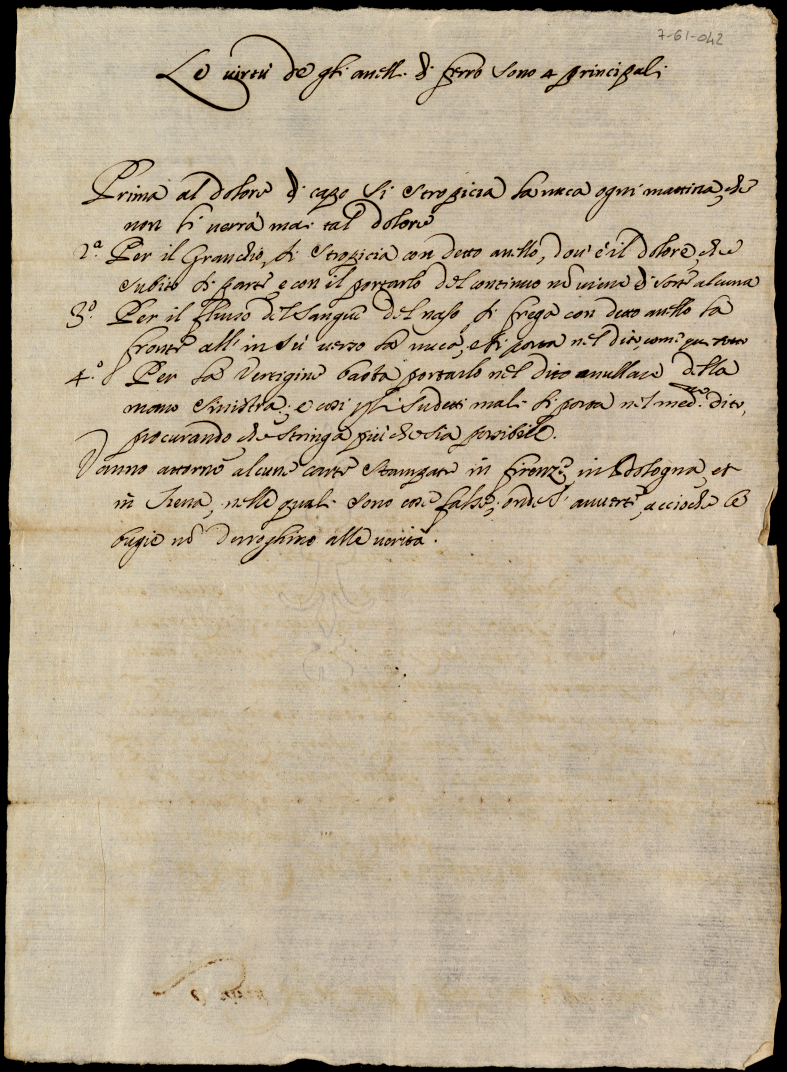 7-61-042
Le virtù de gli anelli di ferro sono 4 principali
Prima al dolore di capo si stropicia la nuca ogni mattina, che
non li verrà mai tal dolore
2.a Per il Granchio, si stropicia con detto anello, dov'è il dolore, che
subito si parte, e con il portarlo del continuo nõ viene di sorte alcuna
3.o Per il flusso del sangue del naso si frega con detto anello la
fronte all'in sù verso la nuca, e si porta nel dito, come
4.o Per la Vertigine basta portarlo nel dito anullare della
mano sinistra, e così p gli sudetti mali si porta nel med.mo dito,
procurando che stringa più che sia possibile.
Vanno attorno alcune carte stampate in firenze, in Bologna, et
in Siena, nelle quali sono cose false, onde s'avverte, acciochè le
bugie nõ derroghino alle verità.